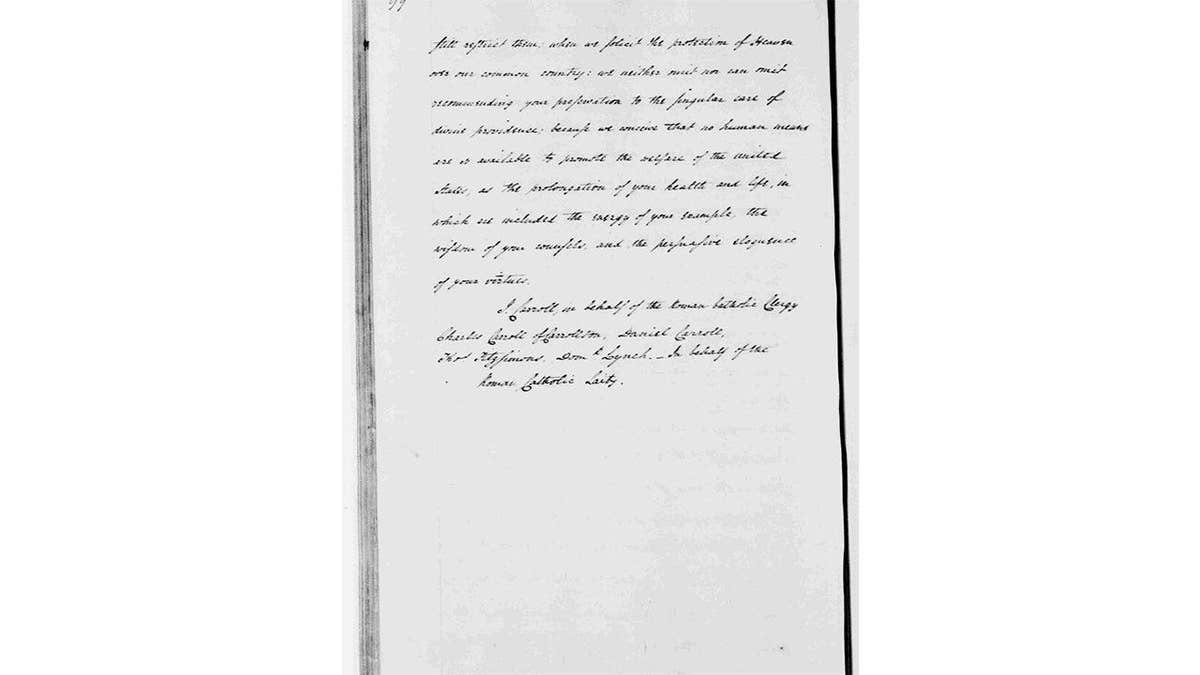 99
still restrict them; when we solicit the protection of Heaven
over our common country: we neither omit nor can omit
recommending your preservation to the singular care of
divine providence; because we conceive that no human means
are so available to promote the welfare of the united
States, as the prolongation of your health and life, in
which are included the energy of your example, the
wisdom of your counsels, and the persuasive eloquence
of your virtues.
J. Carroll, in behalf of the Roman Catholic Clergy
Charles Carroll of Carrollton, Daniel Carroll,
Thos Fitzsimons, Domk Lynch. – In behalf of the
Roman Catholic Laity.